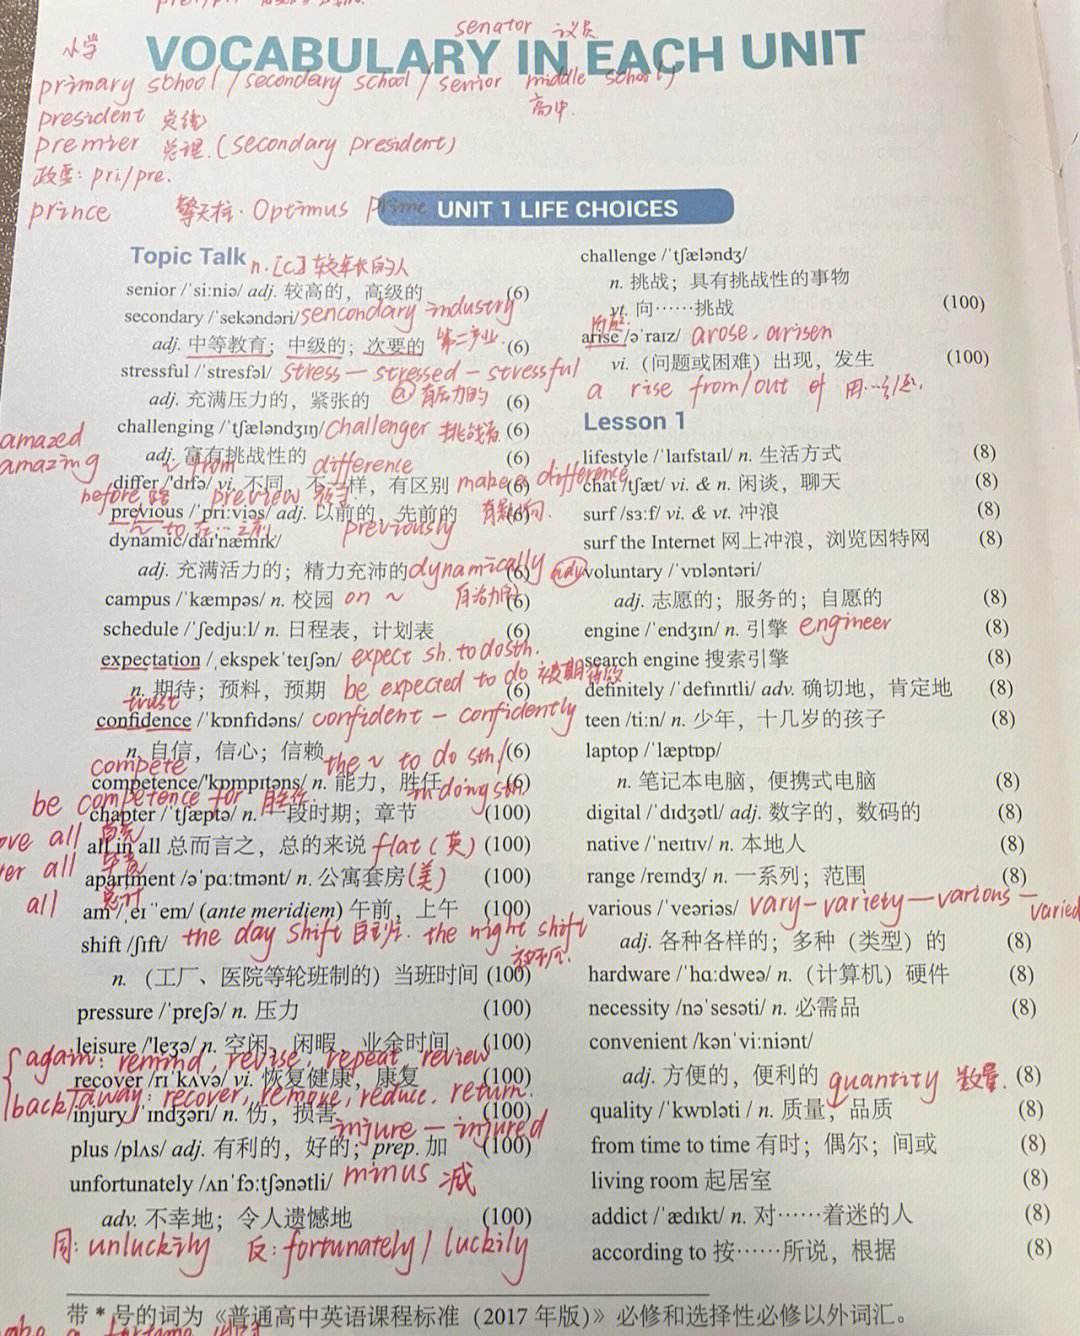 senator 议员
小学 VOCABULARY IN EACH UNIT
primary school / secondary school / senior middle school /
president 总统 高中.
premier 总理. (secondary president)
政要: pri./pre.
prince 擎天柱. Optimus Prime
UNIT 1 LIFE CHOICES
Topic Talk n. [C] 较年长的人
senior /ˈsiːniə/ adj. 较高的，高级的 (6)
secondary /ˈsekəndəri/ sencondary industry
adj. 中等教育；中级的；次要的 第二产业. (6)
stressful /ˈstresfəl/ stress — stressed — stressful
adj. 充满压力的，紧张的 ⓐ 有压力的 (6)
challenging /ˈtʃæləndʒɪŋ/ challenger 挑战者 (6)
amazed
amazing
adj. 富有挑战性的 (6)
~ from difference
differ /'dɪfə/ vi. 不同，不一样，有区别 make a difference (6)
before preview 预习
previous /ˈpriːviəs/ adj. 以前的，先前的 有影响. (6)
~ to 在…之前 previously
dynamic/daɪ'næmɪk/
adj. 充满活力的；精力充沛的 dynamically adv (6)
campus /ˈkæmpəs/ n. 校园 on ~ 有活力的 (6)
schedule /ˈʃedjuːl/ n. 日程表，计划表 (6)
expectation /ˌekspekˈteɪʃən/ expect sb. to do sth.
n. 期待；预料，预期 be expected to do 被期待做 (6)
trust
confidence /ˈkɒnfɪdəns/ confident — confidently
n. 自信，信心；信赖 the ~ to do sth / (6)
compete
competence/'kɒmpɪtəns/ n. 能力，胜任 in doing sth. (6)
be competence for 胜任.
chapter /ˈtʃæptə/ n. 一段时期；章节 (100)
ove all 首先
all in all 总而言之，总的来说 flat (英) (100)
ver all 毕竟
apartment /əˈpɑːtmənt/ n. 公寓套房 (美) (100)
all 总计
am /ˌeɪ ˈˈem/ (ante meridiem) 午前，上午 (100)
shift /ʃɪft/ the day shift 白班. the night shift
n. （工厂、医院等轮班制的）当班时间 (100)
pressure /ˈpreʃə/ n. 压力 (100)
leisure /'leʒə/ n. 空闲，闲暇，业余时间 (100)
again: remind, revise, repeat, review
recover /rɪˈkʌvə/ vi. 恢复健康，康复 (100)
back/away: recover, remove, reduce. return.
injury /ˈɪndʒəri/ n. 伤，损害 (100)
injure — injured
plus /plʌs/ adj. 有利的，好的；prep. 加 (100)
unfortunately /ʌnˈfɔːtʃənətli/ minus 减
adv. 不幸地；令人遗憾地 (100)
同: unluckily 反: fortunately / luckily
challenge /ˈtʃæləndʒ/
n. 挑战；具有挑战性的事物
vt. 向……挑战 (100)
arise /əˈraɪz/ arose, arisen
vi. （问题或困难）出现，发生 (100)
a rise from/out of 由…引起.
Lesson 1
lifestyle /ˈlaɪfstaɪl/ n. 生活方式 (8)
chat /tʃæt/ vi. & n. 闲谈，聊天 (8)
surf /sɜːf/ vi. & vt. 冲浪 (8)
surf the Internet 网上冲浪，浏览因特网 (8)
voluntary /ˈvɒləntəri/
adj. 志愿的；服务的；自愿的 (8)
engine /ˈendʒɪn/ n. 引擎 engineer (8)
search engine 搜索引擎 (8)
definitely /ˈdefɪnɪtli/ adv. 确切地，肯定地 (8)
teen /tiːn/ n. 少年，十几岁的孩子 (8)
laptop /ˈlæptɒp/
n. 笔记本电脑，便携式电脑 (8)
digital /ˈdɪdʒətl/ adj. 数字的，数码的 (8)
native /ˈneɪtɪv/ n. 本地人 (8)
range /reɪndʒ/ n. 一系列；范围 (8)
various /ˈveəriəs/ vary — variety — various — varied
adj. 各种各样的；多种（类型）的 (8)
hardware /ˈhɑːdweə/ n. （计算机）硬件 (8)
necessity /nəˈsesəti/ n. 必需品 (8)
convenient /kənˈviːniənt/
adj. 方便的，便利的 quantity 数量. (8)
quality /ˈkwɒləti / n. 质量，品质 (8)
from time to time 有时；偶尔；间或 (8)
living room 起居室 (8)
addict /ˈædɪkt/ n. 对……着迷的人 (8)
according to 按……所说，根据 (8)
带 * 号的词为《普通高中英语课程标准（2017 年版）》必修和选择性必修以外词汇。